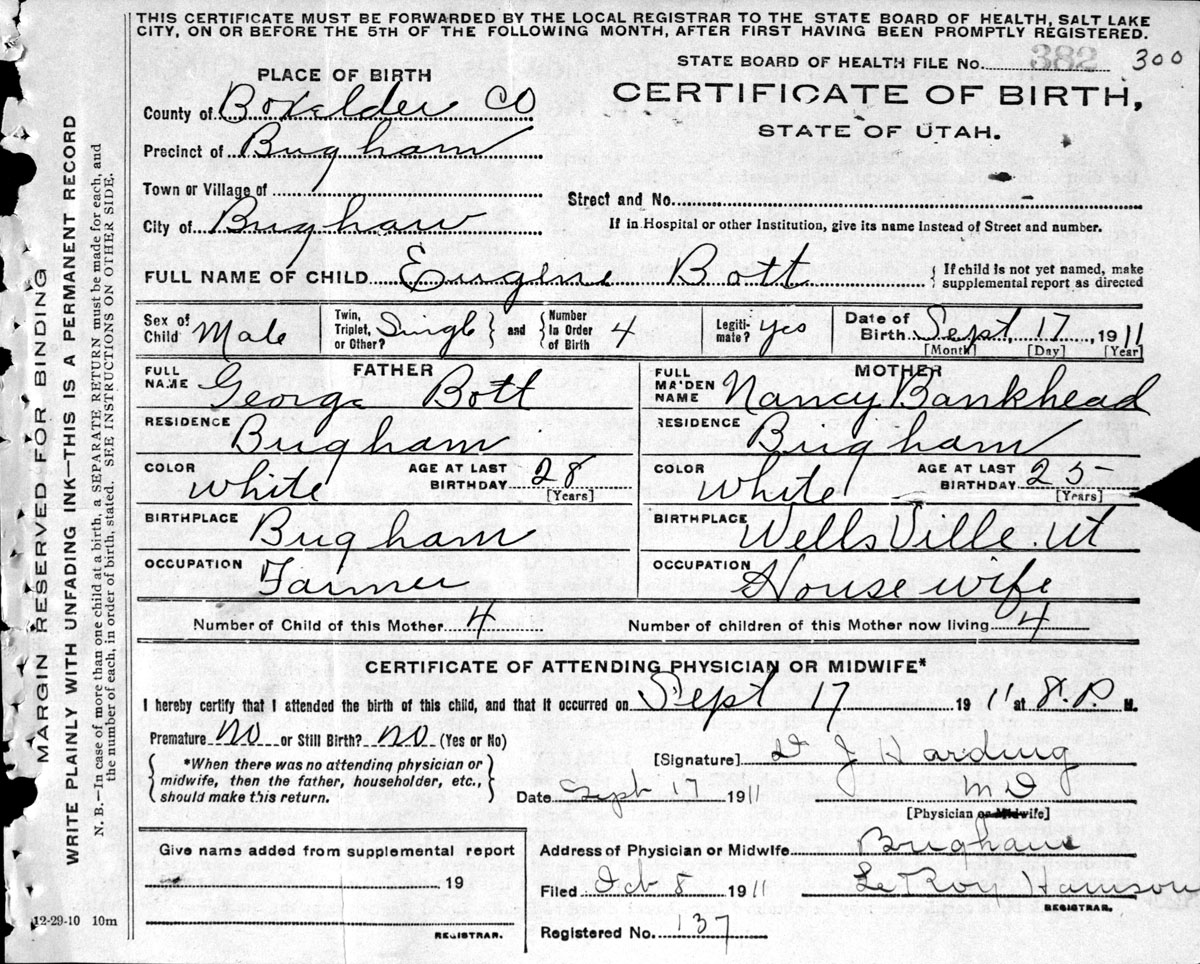 THIS CERTIFICATE MUST BE FORWARDED BY THE LOCAL REGISTRAR TO THE STATE BOARD OF HEALTH, SALT LAKE
CITY, ON OR BEFORE THE 5TH OF THE FOLLOWING MONTH, AFTER FIRST HAVING BEEN PROMPTLY REGISTERED.
STATE BOARD OF HEALTH FILE No. 382 300
PLACE OF BIRTH
CERTIFICATE OF BIRTH,
STATE OF UTAH.
County of Boxelder CO
Precinct of Brigham
Town or Village of
Street and No.
City of Brigham
If in Hospital or other Institution, give its name Instead of Street and number.
FULL NAME OF CHILD Eugene Bott
{ If child is not yet named, make
supplemental report as directed
Sex of Child Male
Twin, Triplet, or Other? Single } and { Number In Order of Birth 4
Legiti-mate? yes
Date of Birth Sept, 17, 1911
[Month] [Day] [Year]
FATHER
FULL NAME George Bott
RESIDENCE Brigham
COLOR White
AGE AT LAST BIRTHDAY 28
[Years]
BIRTHPLACE Brigham
OCCUPATION Farmer
MOTHER
FULL MA'DEN NAME Nancy Bankhead
RESIDENCE Brigham
COLOR White
AGE AT LAST BIRTHDAY 25
[Years]
BIRTHPLACE WellsVille Ut
OCCUPATION House wife
Number of Child of this Mother 4
Number of children of this Mother now living 4
CERTIFICATE OF ATTENDING PHYSICIAN OR MIDWIFE*
I hereby certify that I attended the birth of this child, and that it occurred on Sept 17 1911 at 8.P. M.
Premature No or Still Birth? No (Yes or No)
{ *When there was no attending physician or
midwife, then the father, householder, etc.,
should make this return. }
[Signature] J Harding
M D
[Physician or Midwife]
Date Sept 17 1911
Give name added from supplemental report
19
REGISTRAR.
Address of Physician or Midwife Brigham
Filed Oct 8 1911
LeRoy Harrison
REGISTRAR.
Registered No. 137
12-29-10 10m
MARGIN RESERVED FOR BINDING
WRITE PLAINLY WITH UNFADING INK—THIS IS A PERMANENT RECORD
N. B.—In case of more than one child at a birth, a SEPARATE RETURN must be made for each, and
the number of each, in order of birth, stated. SEE INSTRUCTIONS ON OTHER SIDE.